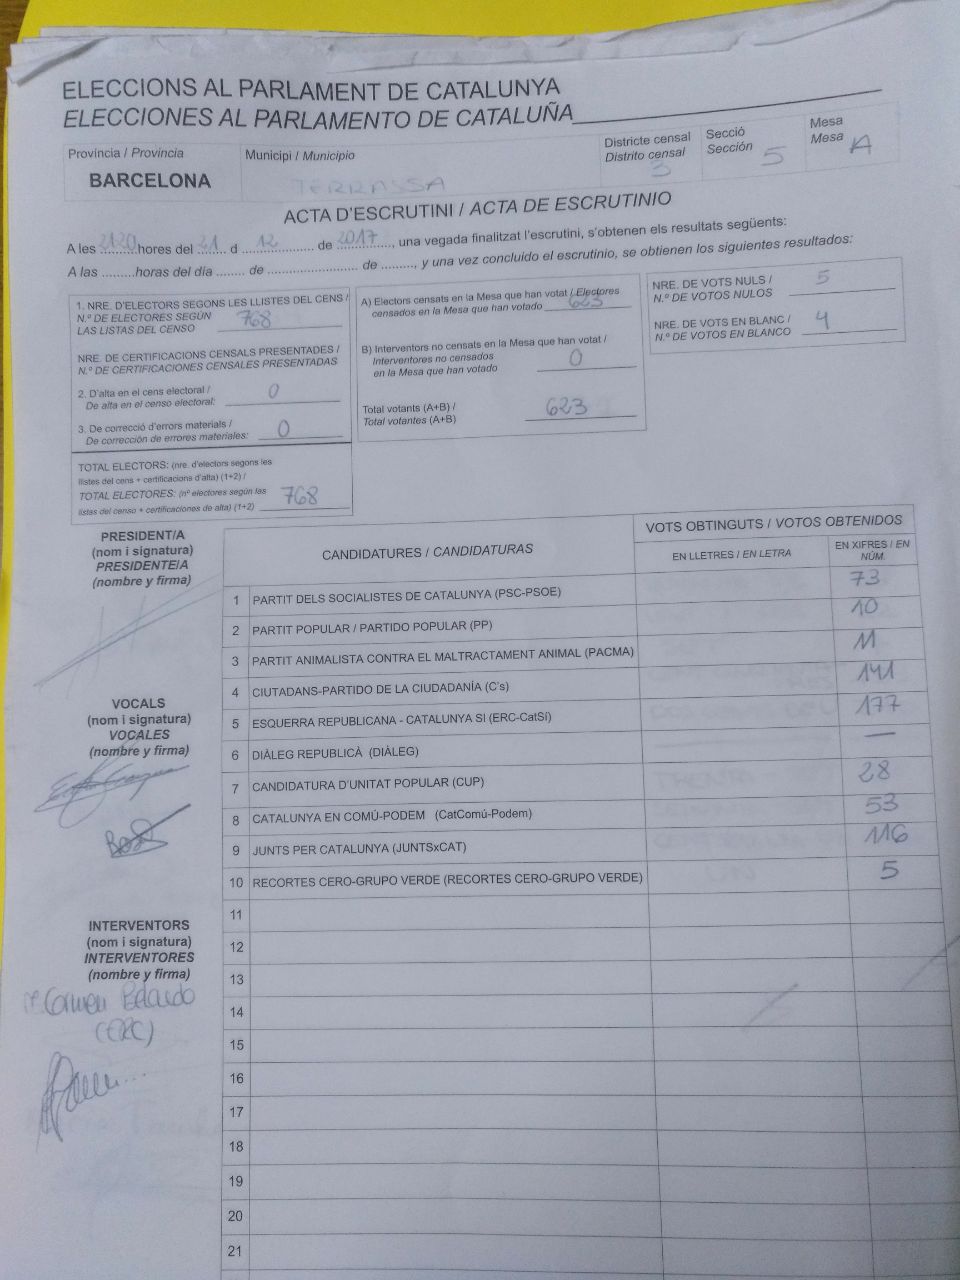 ELECCIONS AL PARLAMENT DE CATALUNYA
ELECCIONES AL PARLAMENTO DE CATALUÑA
Província / Provincia
BARCELONA
Municipi / Municipio
TERRASSA
Districte censal
Distrito censal
3
Secció
Sección
5
Mesa
Mesa
A
ACTA D'ESCRUTINI / ACTA DE ESCRUTINIO
A les 2120 hores del 21 d 12 de 2017, una vegada finalitzat l'escrutini, s'obtenen els resultats següents:
A las .........horas del día ....... de ........................ de ........., y una vez concluido el escrutinio, se obtienen los siguientes resultados:
1. NRE. D'ELECTORS SEGONS LES LLISTES DEL CENS /
N.º DE ELECTORES SEGÚN
LAS LISTAS DEL CENSO 768
NRE. DE CERTIFICACIONS CENSALS PRESENTADES /
N.º DE CERTIFICACIONES CENSALES PRESENTADAS
2. D'alta en el cens electoral /
De alta en el censo electoral: 0
3. De correcció d'errors materials /
De corrección de errores materiales: 0
TOTAL ELECTORS: (nre. d'electors segons les
llistes del cens + certificacions d'alta) (1+2) /
TOTAL ELECTORES: (nº electores según las
listas del censo + certificaciones de alta) (1+2) 768
A) Electors censats en la Mesa que han votat / Electores
censados en la Mesa que han votado 623
B) Interventors no censats en la Mesa que han votat /
Interventores no censados
en la Mesa que han votado 0
Total votants (A+B) /
Total votantes (A+B) 623
NRE. DE VOTS NULS /
N.º DE VOTOS NULOS 5
NRE. DE VOTS EN BLANC /
N.º DE VOTOS EN BLANCO 4
PRESIDENT/A
(nom i signatura)
PRESIDENTE/A
(nombre y firma)
VOCALS
(nom i signatura)
VOCALES
(nombre y firma)
INTERVENTORS
(nom i signatura)
INTERVENTORES
(nombre y firma)
Carmen
(ERC)
CANDIDATURES / CANDIDATURAS
VOTS OBTINGUTS / VOTOS OBTENIDOS
EN LLETRES / EN LETRA
EN XIFRES / EN
NÚM.
1 PARTIT DELS SOCIALISTES DE CATALUNYA (PSC-PSOE) 73
2 PARTIT POPULAR / PARTIDO POPULAR (PP) 10
3 PARTIT ANIMALISTA CONTRA EL MALTRACTAMENT ANIMAL (PACMA) 11
4 CIUTADANS-PARTIDO DE LA CIUDADANÍA (C's) 141
5 ESQUERRA REPUBLICANA - CATALUNYA SI (ERC-CatSí) 177
6 DIÀLEG REPUBLICÀ (DIÀLEG) —
7 CANDIDATURA D'UNITAT POPULAR (CUP) 28
8 CATALUNYA EN COMÚ-PODEM (CatComú-Podem) 53
9 JUNTS PER CATALUNYA (JUNTSxCAT) 116
10 RECORTES CERO-GRUPO VERDE (RECORTES CERO-GRUPO VERDE) 5
11
12
13
14
15
16
17
18
19
20
21